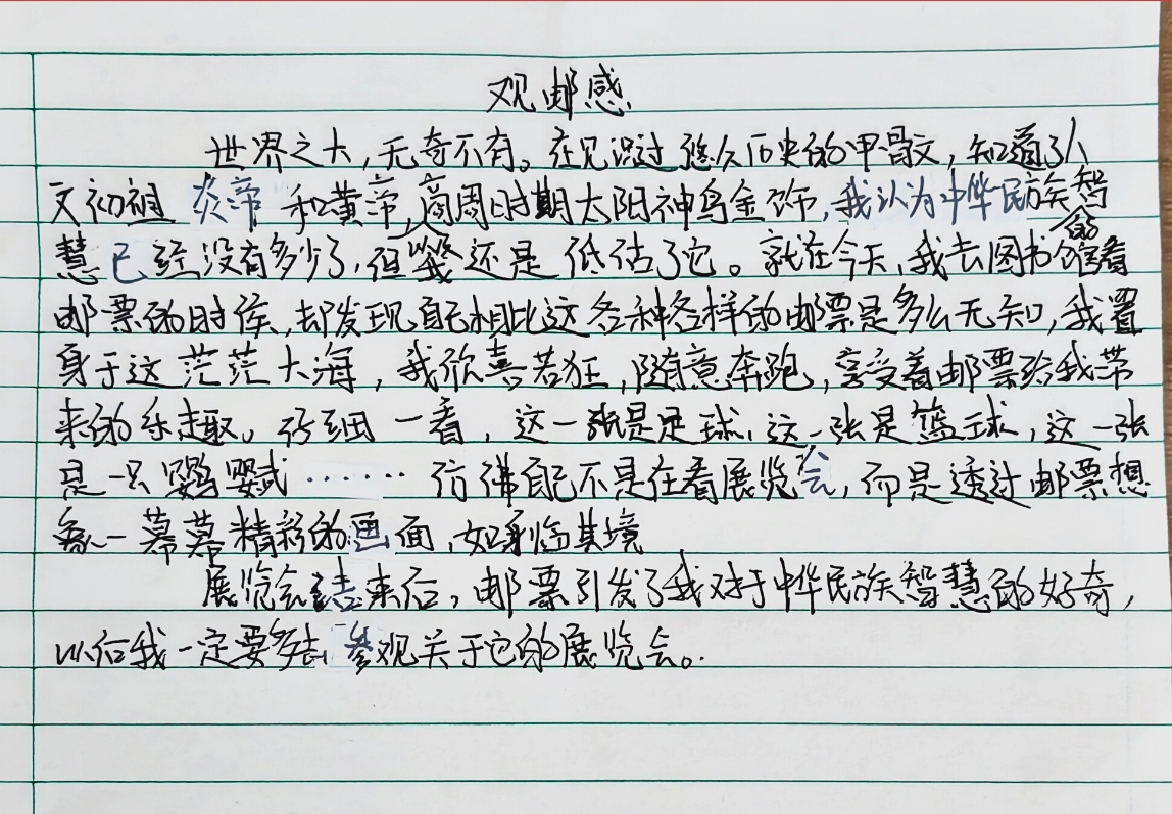 观邮感
世界之大，无奇不有。在见识过悠久历史的甲骨文，知道了人
文初祖炎帝和黄帝，商周时期太阳神鸟金饰，我认为中华民族的智
慧已经没有多少了，但我还是低估了它。就在今天，我去图书馆看
邮票的时侯，却发现自己相比这各种各样的邮票是多么无知，我置
身于这茫茫大海，我欣喜若狂，随意奔跑，享受着邮票给我带
来的乐趣。仔细一看，这一张是足球，这一张是篮球，这一张
是一只鹦鹉……仿佛自己不是在看展览会，而是透过邮票想
象一幕幕精彩的画面，如身临其境
展览会结束后，邮票引发了我对于中华民族智慧的好奇，
以后我一定要多去参观关于它的展览会。